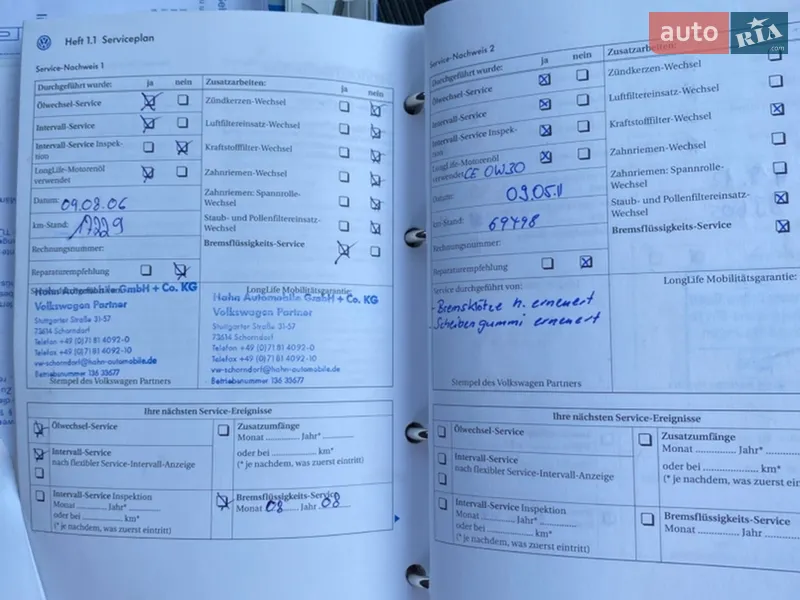 auto RIA .com
Heft 1.1 Serviceplan
Service-Nachweis 1
Durchgeführt wurde: ja nein
Ölwechsel-Service
Intervall-Service
Intervall-Service Inspek-
tion
LongLife-Motorenöl
verwendet
Datum: 09.08.06
km-Stand: 17229
Rechnungsnummer:
Reparaturempfehlung
Zusatzarbeiten: ja nein
Zündkerzen-Wechsel
Luftfiltereinsatz-Wechsel
Kraftstofffilter-Wechsel
Zahnriemen-Wechsel
Zahnriemen: Spannrolle-
Wechsel
Staub- und Pollenfiltereinsatz-
Wechsel
Bremsflüssigkeits-Service
Hahn Automobile GmbH + Co. KG
Volkswagen Partner
Stuttgarter Straße 31-57
73614 Schorndorf
Telefon +49 (0)71 81 4092-0
Telefax +49 (0)71 81 4092-10
vw-schorndorf@hahn-automobile.de
Betriebsnummer 136 33677
Stempel des Volkswagen Partners
LongLife Mobilitätsgarantie:
Hahn Automobile GmbH + Co. KG
Volkswagen Partner
Stuttgarter Straße 31-57
73614 Schorndorf
Telefon +49 (0)71 81 4092-0
Telefax +49 (0)71 81 4092-10
vw-schorndorf@hahn-automobile.de
Betriebsnummer 136 33677
Ihre nächsten Service-Ereignisse
Ölwechsel-Service
Intervall-Service
nach flexibler Service-Intervall-Anzeige
Intervall-Service Inspektion
Monat ........... Jahr* ...........
oder bei ........... km*
(* je nachdem, was zuerst eintritt)
Zusatzumfänge
Monat ........... Jahr* ...........
oder bei ........... km*
(* je nachdem, was zuerst eintritt)
Bremsflüssigkeits-Service
Monat 08 Jahr 08
Service-Nachweis 2
Durchgeführt wurde: ja nein
Ölwechsel-Service
Intervall-Service
Intervall-Service Inspek-
tion
LongLife-Motorenöl
verwendet CE 0W30
Datum: 09.05.11
km-Stand: 69498
Rechnungsnummer:
Reparaturempfehlung
Zusatzarbeiten:
Zündkerzen-Wechsel
Luftfiltereinsatz-Wechsel
Kraftstofffilter-Wechsel
Zahnriemen-Wechsel
Zahnriemen: Spannrolle-
Wechsel
Staub- und Pollenfiltereinsatz-
Wechsel
Bremsflüssigkeits-Service
Service durchgeführt von:
- Bremsklötze h. erneuert
- Scheibengummi erneuert
Stempel des Volkswagen Partners
LongLife Mobilitätsgarantie:
Ihre nächsten Service-Ereignisse
Ölwechsel-Service
Intervall-Service
nach flexibler Service-Intervall-Anzeige
Intervall-Service Inspektion
Monat ........... Jahr* ...........
oder bei ........... km*
(* je nachdem, was zuerst eintritt)
Zusatzumfänge
Monat ........... Jahr*
oder bei ........... km*
(* je nachdem, was zuerst
Bremsflüssigkeits-Service
Monat ........... Jahr